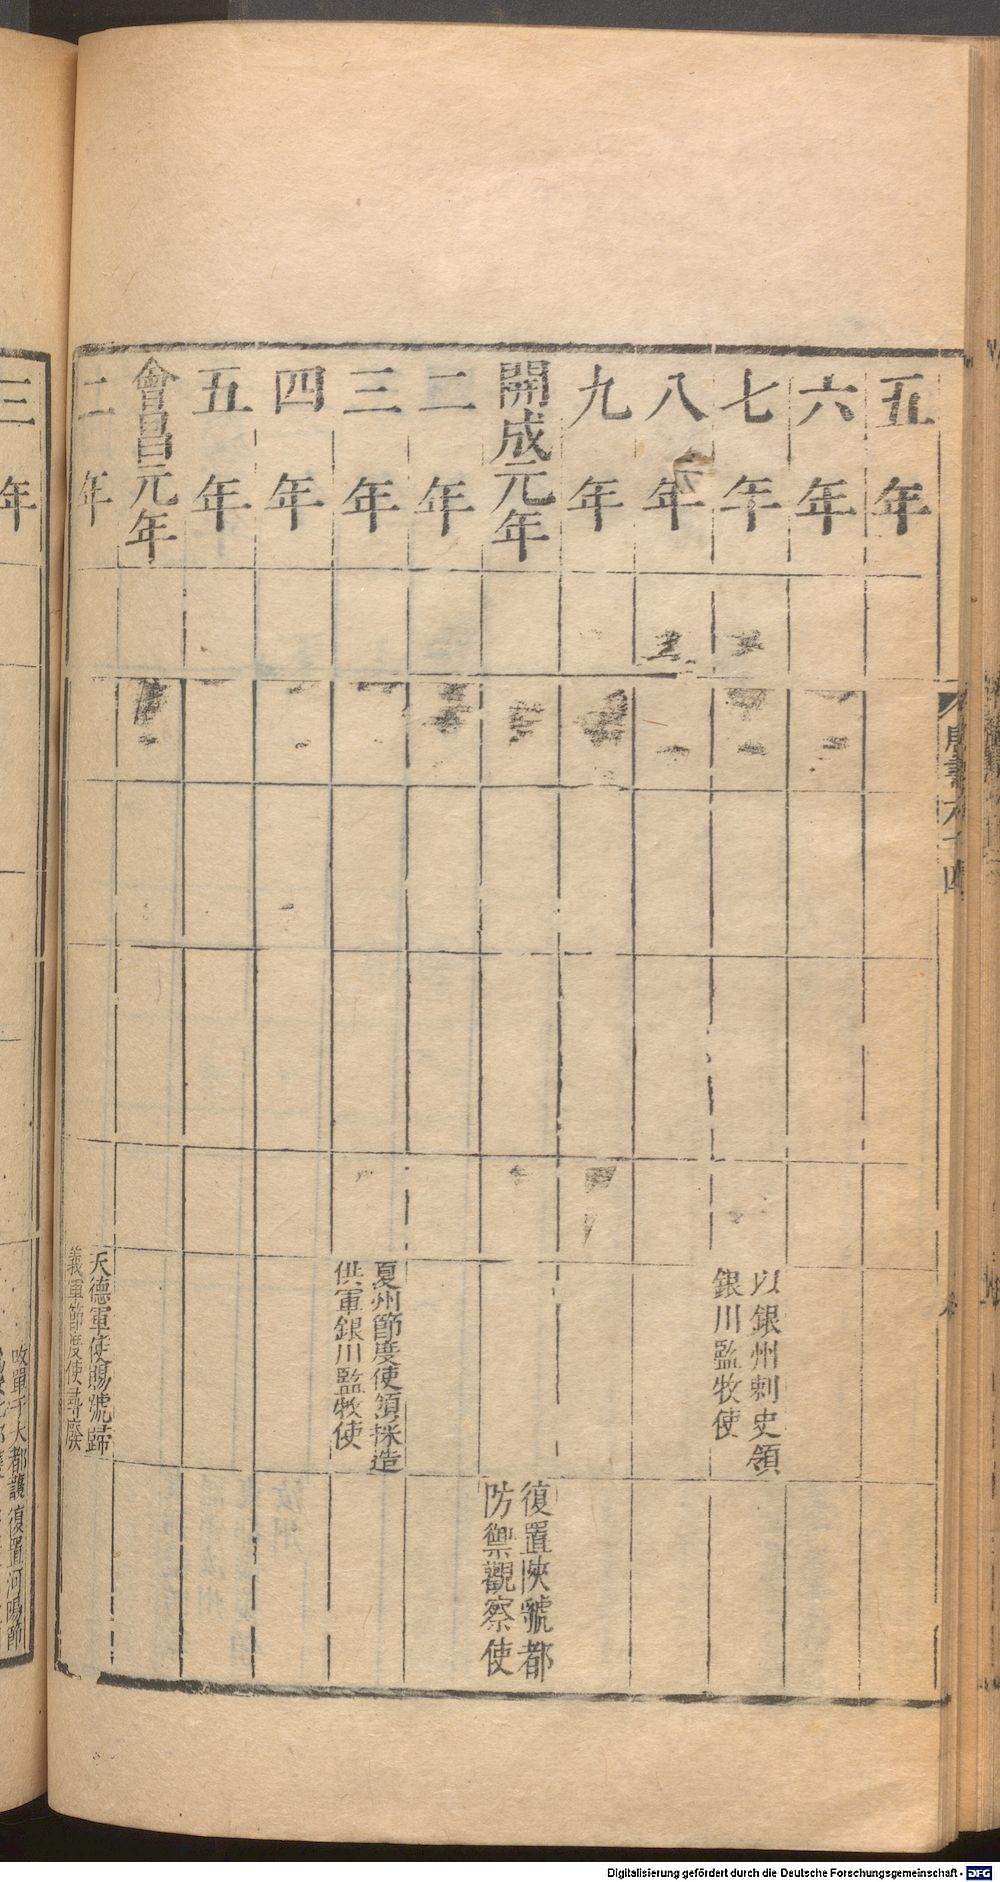 五年
六年
七年
以銀州刺史領
銀川監牧使
八年
九年
開成元年
復置陝虢都
防禦觀察使
二年
三年
夏州節度使領採造
供軍銀川監牧使
四年
五年
會昌元年
二年
天德軍使賜號歸
義軍節度使尋廢
三年
改單于大都護
復置河陽節
唐書六十四
Digitalisierung gefördert durch die Deutsche Forschungsgemeinschaft - DFG